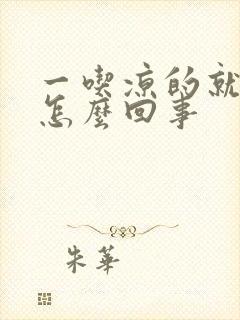 一喫涼的就
怎麼回事
朱華